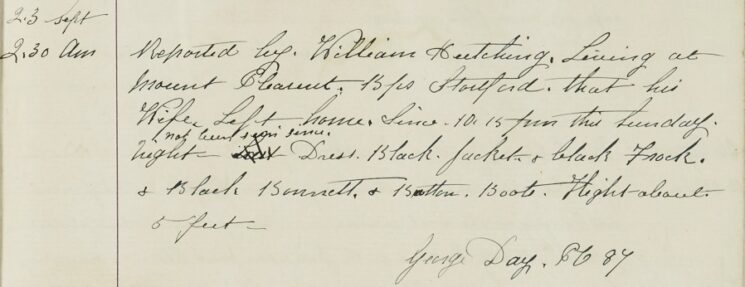 23 Sept
2.30 Am
Reported by. William Hutching. Living at
Mount Pleasent. B/ps Stortford. that his
Wife Left home. Since 10.15 pm this Sunday.
not been seen since.
night Dress. Black. Jacket & black Frock.
& Black Bonnett. & Button. Boots. Hight about
5 feet
George Day. PC 87